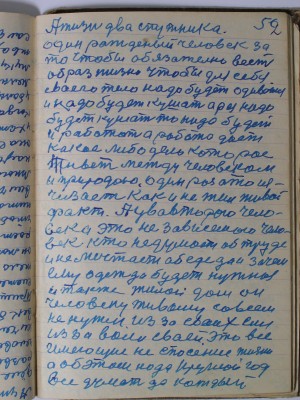 52
А жизни два спутника.
один рожденый человек за
то чтобы обязательно вести
образ жизни чтобы для себя
своего тело надо будет одевать
и надо будет кушать а раз надо
будет кушать то надо будет
и работат а работа дает
какое либо дело которое
живет между человеком
и природою. один раз и то ис-
чезает как и не жил живой
факт. А у второго чело-
века это не зависемого чело-
век кто не думает об труде
и не мечтает об еде да зачем
ему одежда будет нужна
и также жилой дом он
человеку живому совсем
не нужен из за своих сил
из за воли своей. Это все
имеющие не спасение жизни
а об этом надо круглый год
все думать да которые